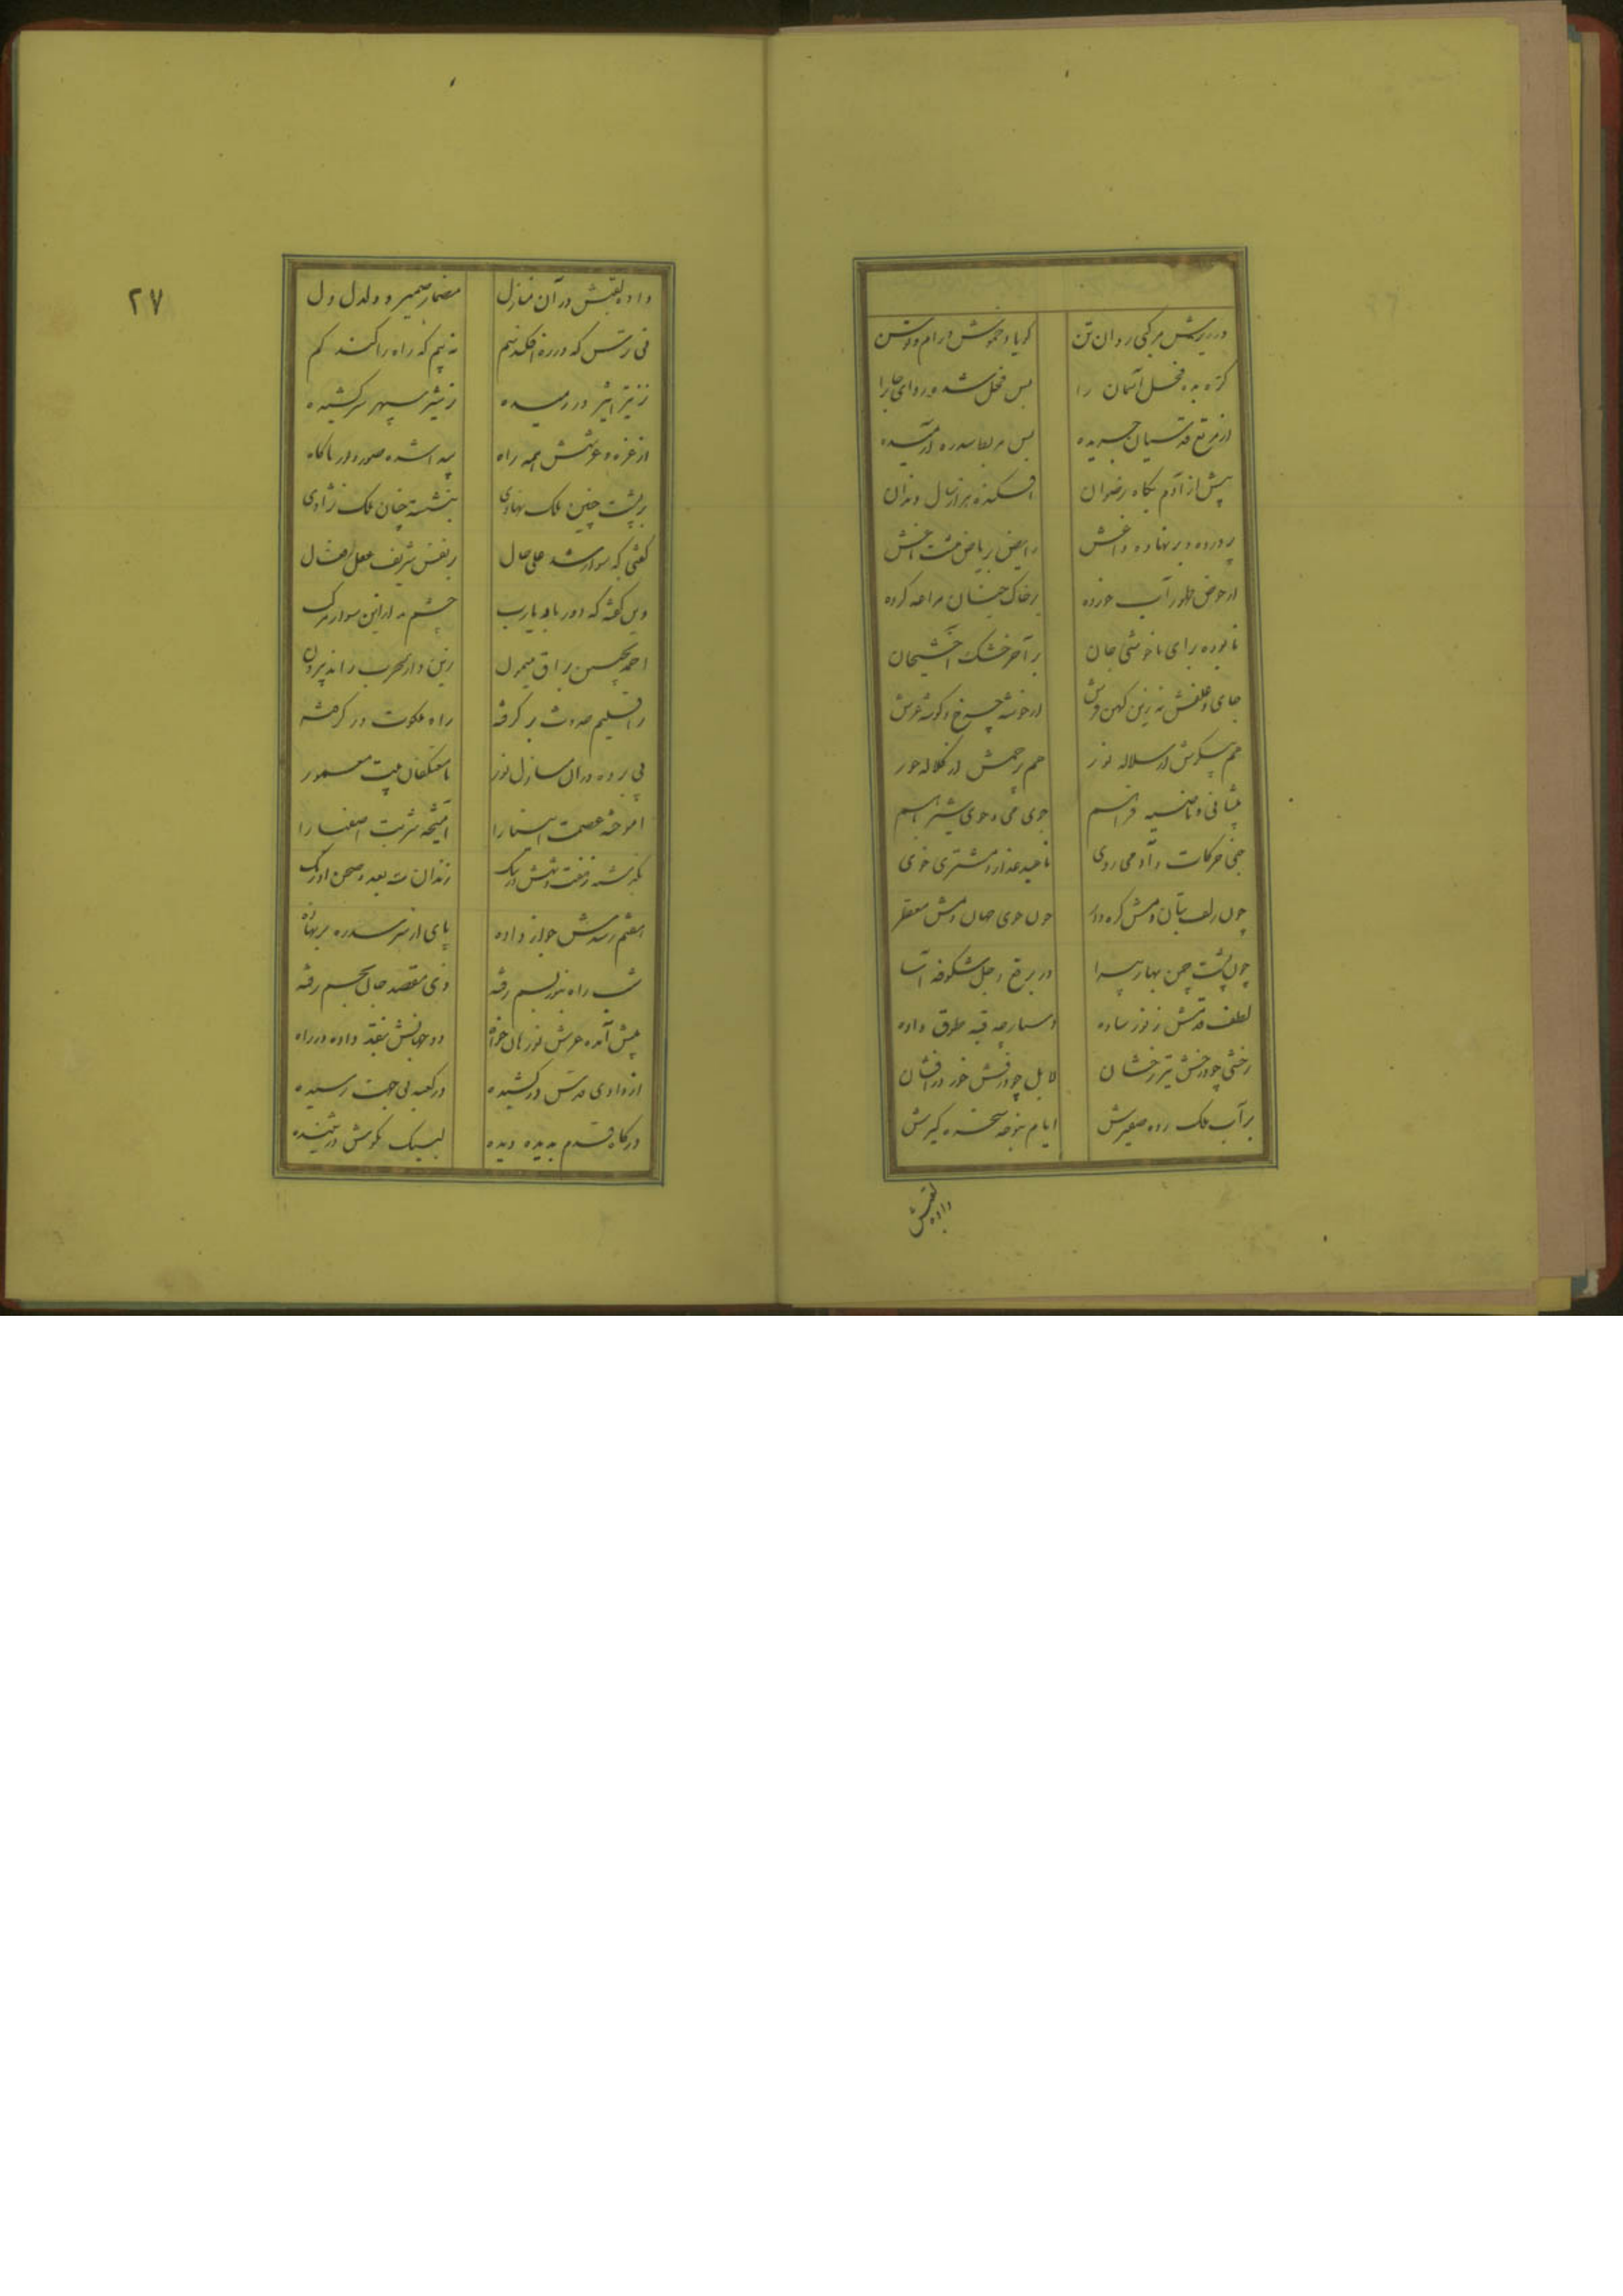 در زیرش مرکبی روان تن گویا و خموش و رام و توسن
کره بده فحل آسمان را بس فحل شده
از مرتع قدسیان چریده بس مربط سدره آرمیده
پیش از آدم بگاه رضوان افکنده هزار سال دندان
پرورده و بر نهاده داغش رایض ریاض هشت باغش
از حوض طهور آب خورده بر خاک جنان مراغه کرده
نابوده برای ناخوشی جان بر آخر خشک آخشیجان
جای علفش نه زین کهن فرش از خوشه چرخ و گوشه عرش
هم پیکرش از سلاله نور هم پرچمش از کلاله حور
پیشانی و ناصیه فراهم جوی می و جوی شیر
جنی حرکات و آدمی روی ناهید عذار و مشتری خوی
چون زلف بتان دمش گره‌ور چون خوی جهان دمش معطر
چون پشت چمن بهار پیرا در برقع و جل شکوفه آسا
لطف قدمش ز نور ساده دستارچه قبه طوق داده
رخشی چو درخش تیز رخشان لا بل چو درفش خور درافشان
بر آب فلک زده صفیرش ایام بنوحه سخره گیرش
داده لقبش
۲۷
داده لقبش در آن منازل مضمار ضمیر و دلدل دل
نی ترس که در ره افکند سم نه بیم که راه را کند گم
زیر اثیر در رمیده سپهر سرکشیده
از غره و غرشش همه راه پیدا شده صور و دور ناگاه
بر پشت چنین فلک نهادی بنشسته چنان ملک نژادی
گفتی که سوار شد علی حال بر نفس شریف عقل فعال
وین گفته که دور باد یارب چشم بد ازین سوار و مرکب
احمد بچنین براق میمون زین دار حرب راند بیرون
ز اقلیم حدوث برگرفته راه ملکوت در گرفته
پی برده در آن منازل نور با معتکفان بیت معمور
آموخته عصمت انبیا را آمیخته شربت اصفیا را
بگذشته ز هفت و شش زندان
هفتم رصدش جواز داده پای از سر سدره بر نهاده
شب راه بنور بسم رفته
پیش آمده عرش نور دو جهانش بنقد داده در راه
از وادی قدس در کشیده در کعبه بی جهت رسیده
درگاه قدم بدیده دیده لبیک بگوش در شنیده